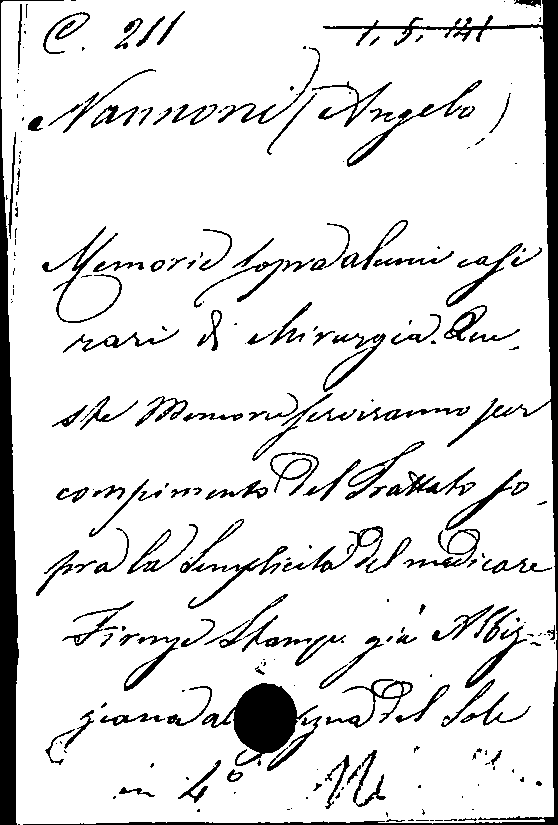 C. 211 1. 5. 141
Nannoni (Angelo)
Memorie sopra alcuni casi
rari di chirurgia. Que-
ste Memorie serviranno per
compimento del Trattato so-
pra la Semplicità del medicare
Firenze Stamp. già Albiz-
ziniana al del Sole
in 4°